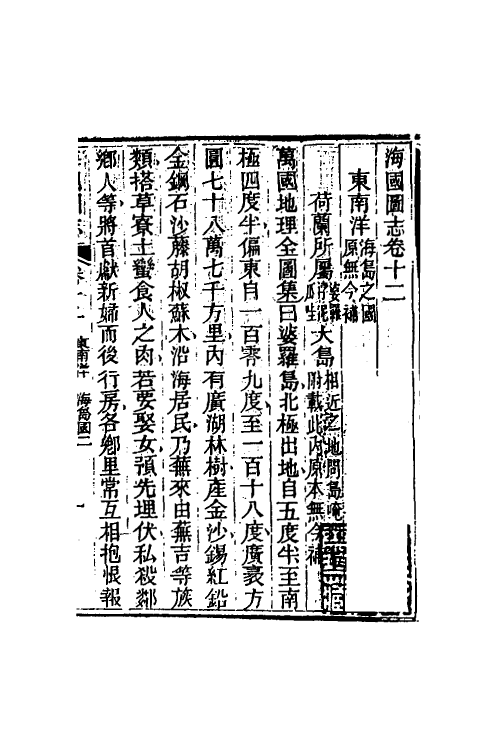 海國圖志卷十二
東南洋海島之國原無今補
荷蘭所屬大島婆羅相近之地問島唵附載此內原本無今補
萬國地理全圖集曰婆羅島北極出地自五度半至南
極四度半偏東自一百零九度至一百十八度廣袤方
圓七十八萬七千方里內有廣湖林樹產金沙錫紅鉛
金鋼石沙藤胡椒蘇木沿海居民乃蕪來由蕪吉等族
類搭草寮土蠻食人之肉若要娶女預先埋伏私殺鄰
鄉人等將首獻新婦而後行房各鄉里常互相抱恨報
東南洋 海島國二 一